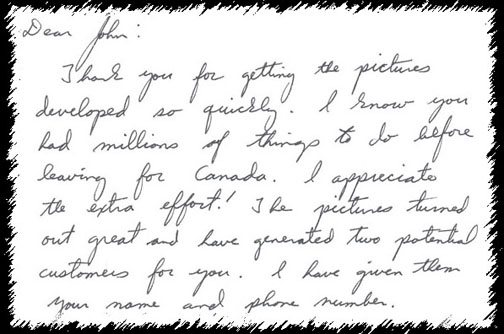 Dear John:
Thank you for getting the pictures
developed so quickly. I know you
had millions of things to do before
leaving for Canada. I appreciate
the extra effort! The pictures turned
out great and have generated two potential
customers for you. I have given them
your name and phone number.